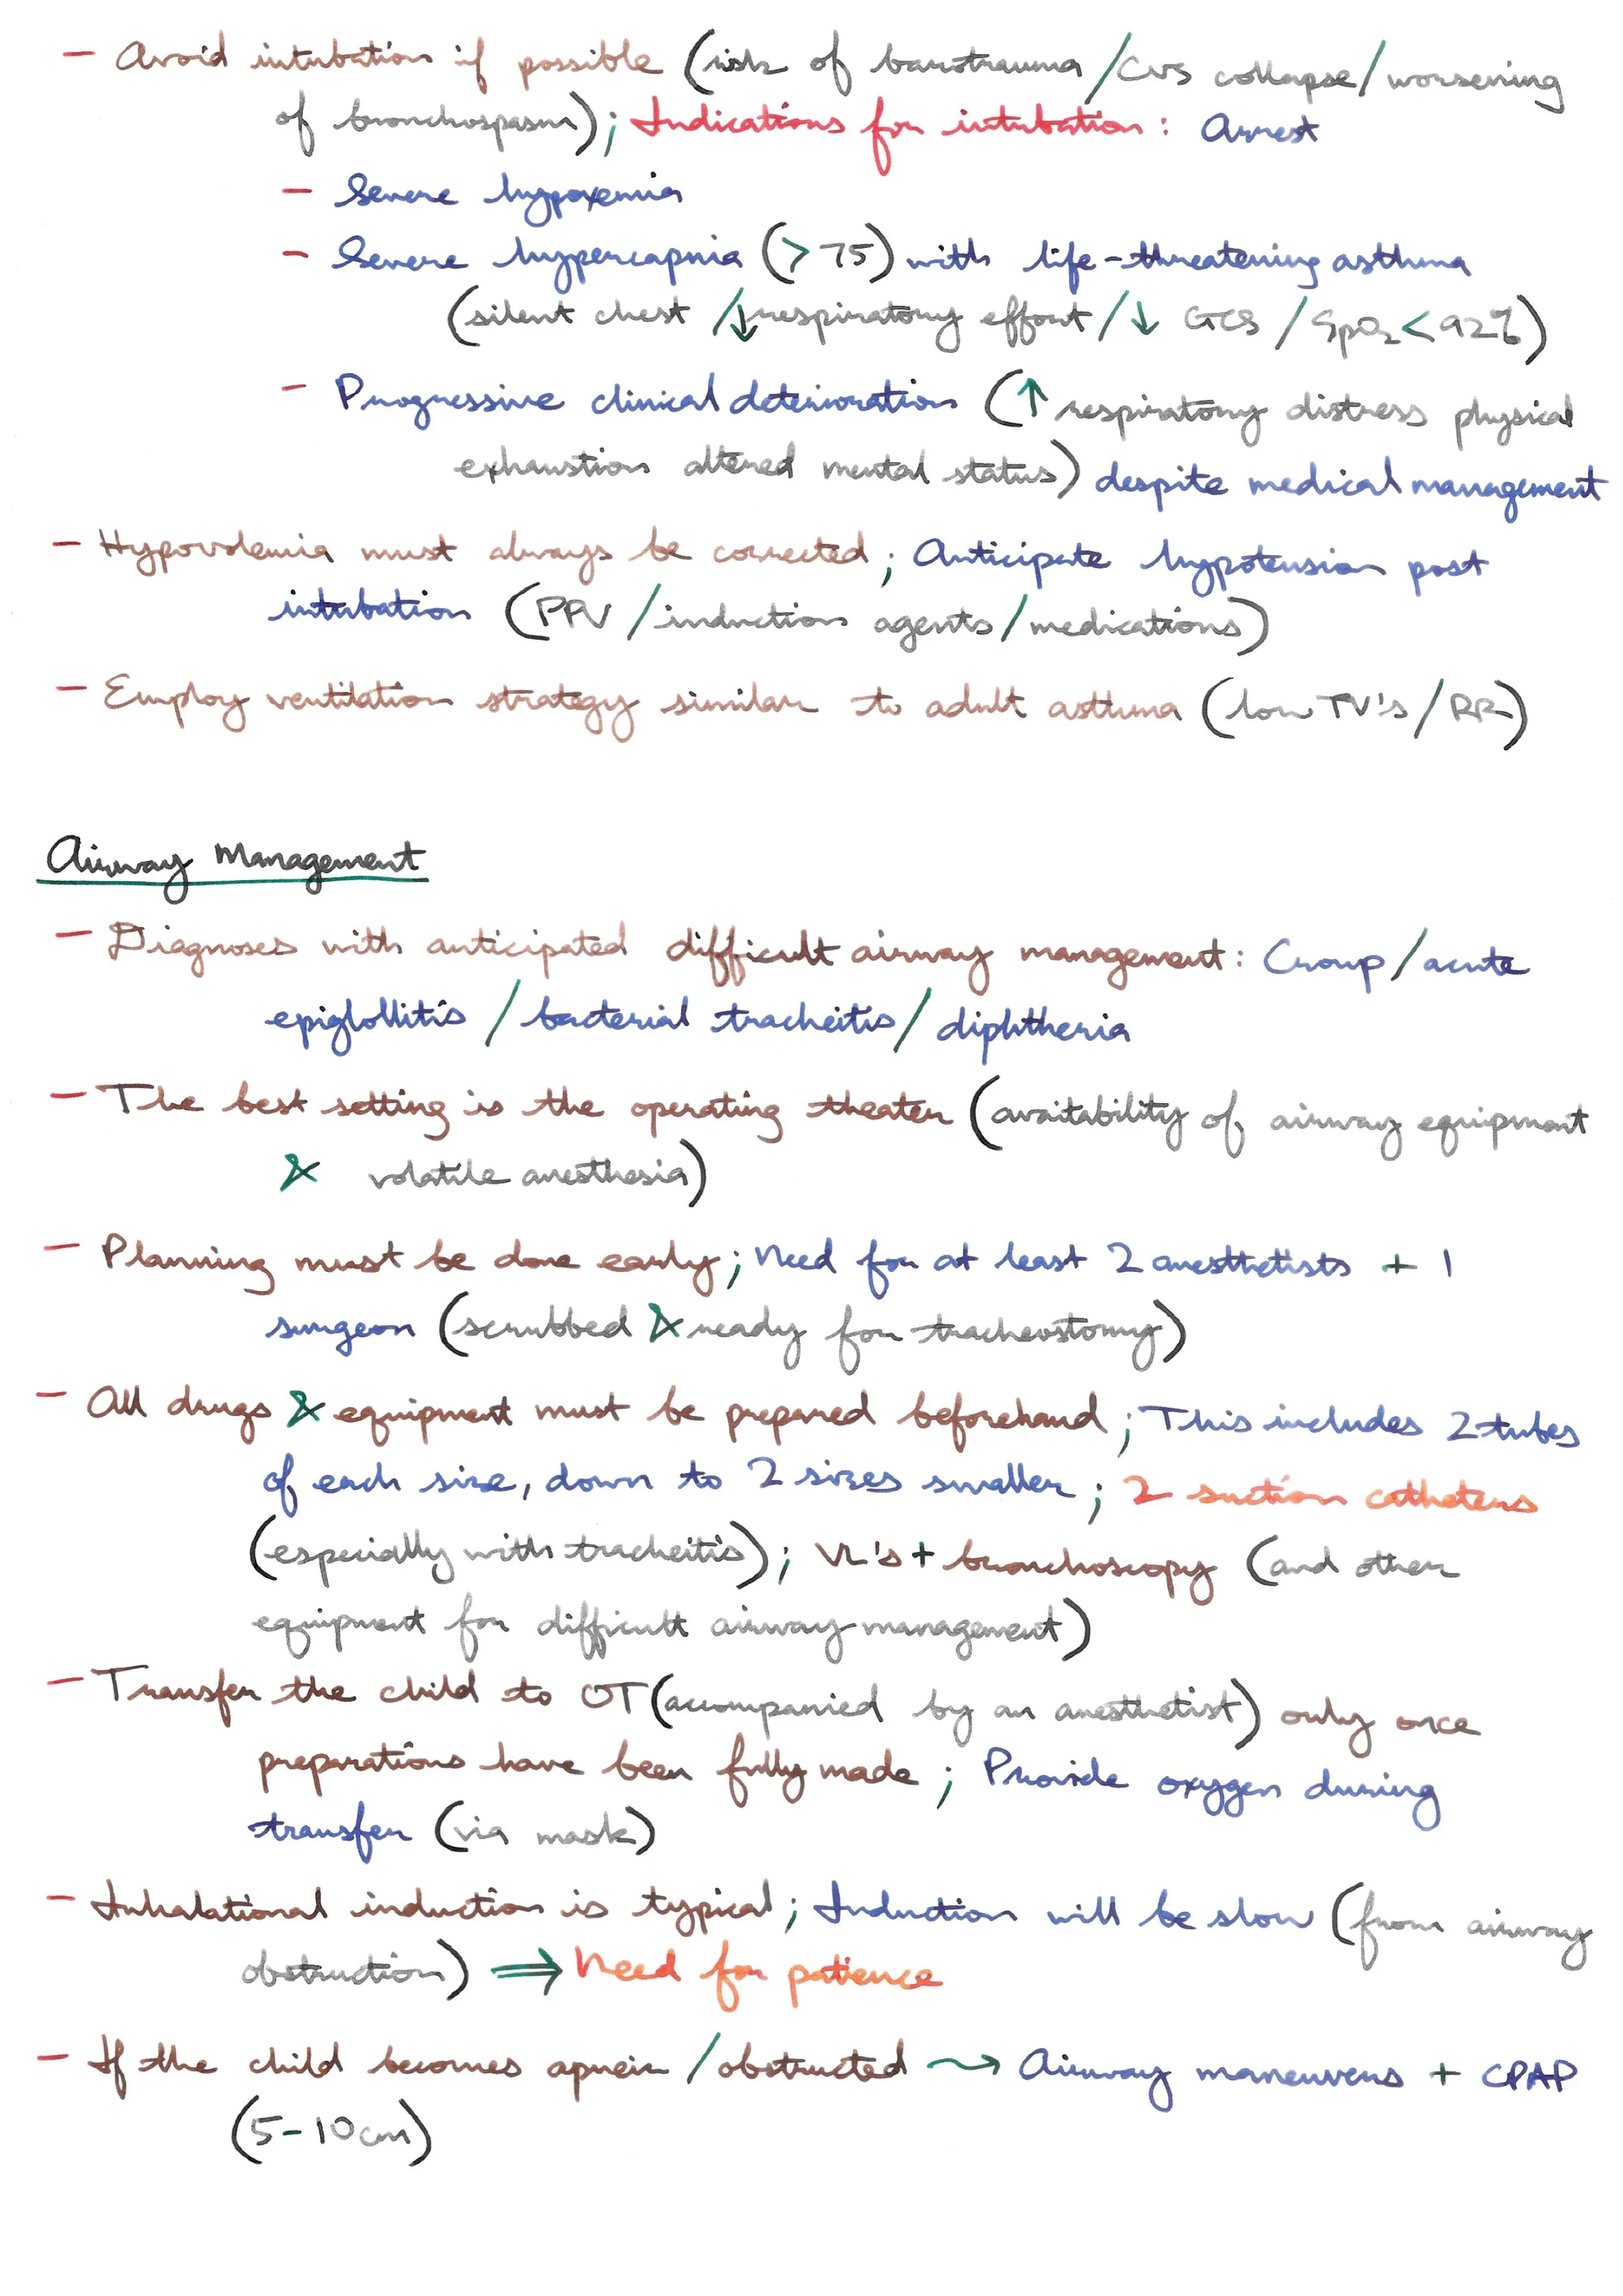 - Avoid intubation if possible (risk of barotrauma / CVS collapse / worsening
of bronchospasm); Indications for intubation: Arrest
- Severe hypoxemia
- Severe hypercapnia (> 75) with life-threatening asthma
(silent chest / ↓ respiratory effort / ↓ GCS / SpO₂ < 92%)
- Progressive clinical deterioration (↑ respiratory distress physical
exhaustion altered mental status) despite medical management
- Hypovolemia must always be corrected; Anticipate hypotension post
intubation (PPV / induction agents / medications)
- Employ ventilation strategy similar to adult asthma (low TV's / RR)
Airway Management
- Diagnoses with anticipated difficult airway management: Croup / acute
epiglollitis / bacterial tracheitis / diphtheria
- The best setting is the operating theater (availability of airway equipment
& volatile anesthesia)
- Planning must be done early; Need for at least 2 anesthetists + 1
surgeon (scrubbed & ready for tracheostomy)
- All drugs & equipment must be prepared beforehand; This includes 2 tubes
of each size, down to 2 sizes smaller; 2 suction catheters
(especially with tracheitis); VL's + bronchoscopy (and other
equipment for difficult airway management)
- Transfer the child to OT (accompanied by an anesthetist) only once
preparations have been fully made; Provide oxygen during
transfer (via mask)
- Inhalational induction is typical; Induction will be slow (from airway
obstruction) ⟹ Need for patience
- If the child becomes apneic / obstructed ⇝ Airway maneuvers + CPAP
(5-10cm)